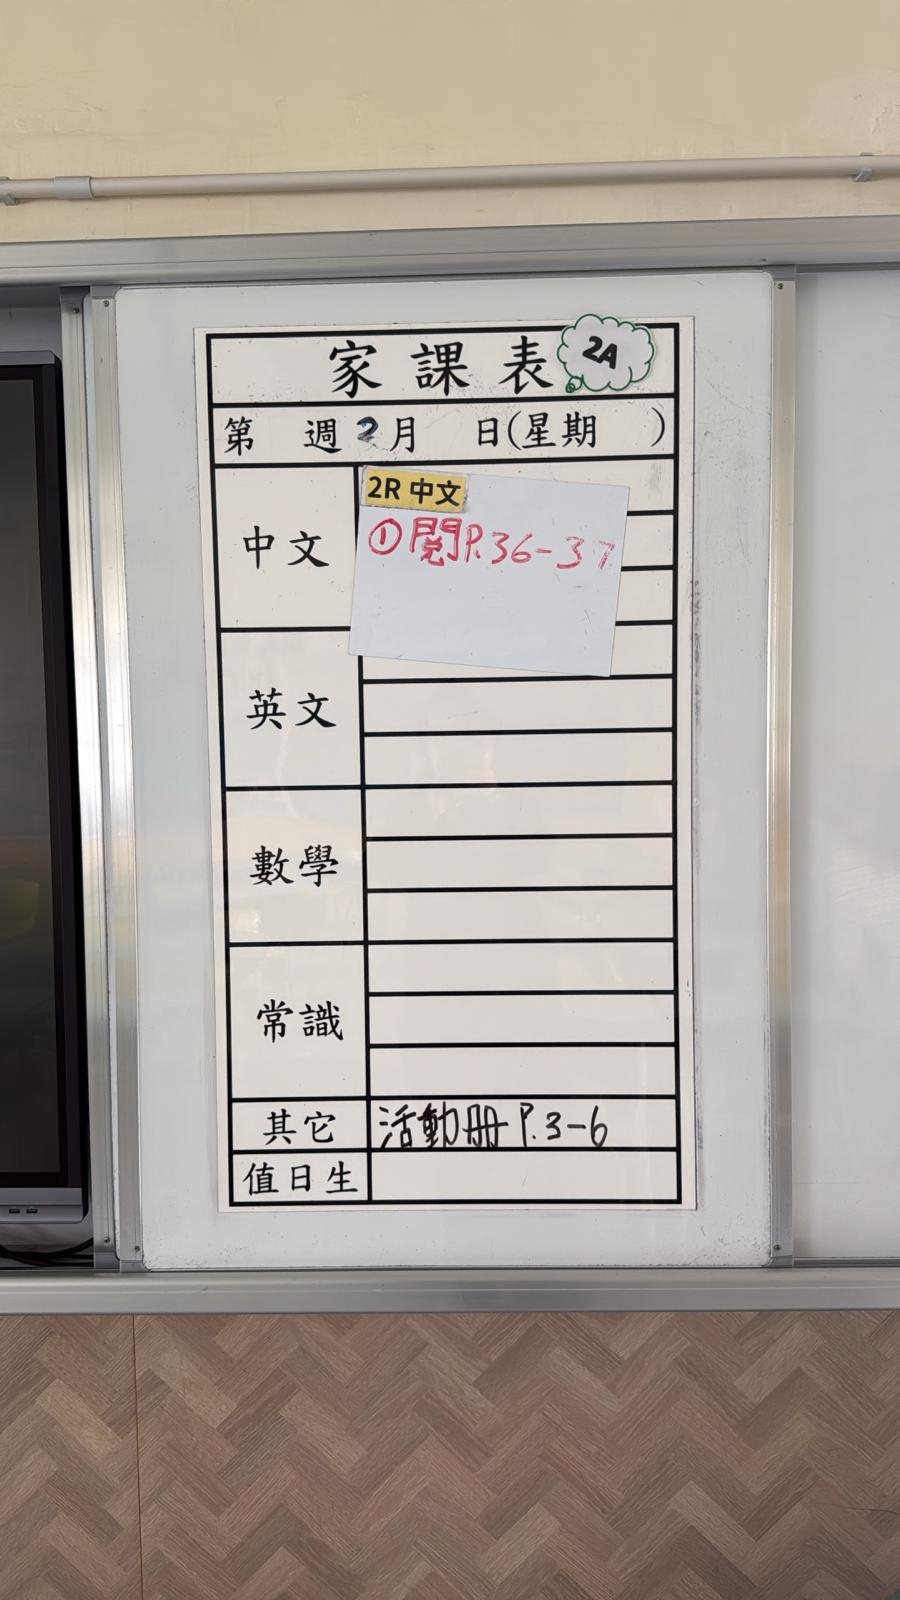 家課表 2A
第 週 2月 日(星期 )
中文
2R 中文
①閱P.36-37
英文
數學
常識
其它 活動冊 P.3-6
值日生